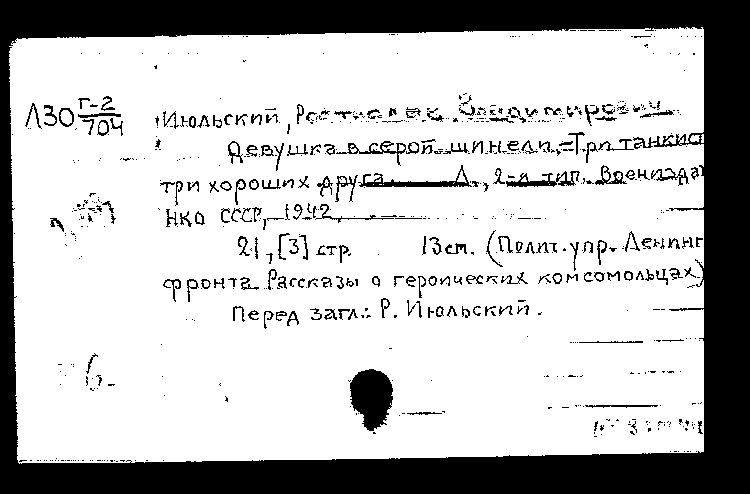 Л30 Г-2
704
Июльский, Ростислав Владимирович
Девушка в серой шинели.=Три танкист
три хороших друга. Л., 2-я тип. Воениздат
НКО СССР, 1942.
21, [3] стр. 13 см. (Полит. упр. Ленинг
фронта. Рассказы о героических комсомольцах)
Перед загл.: Р. Июльский.
6.